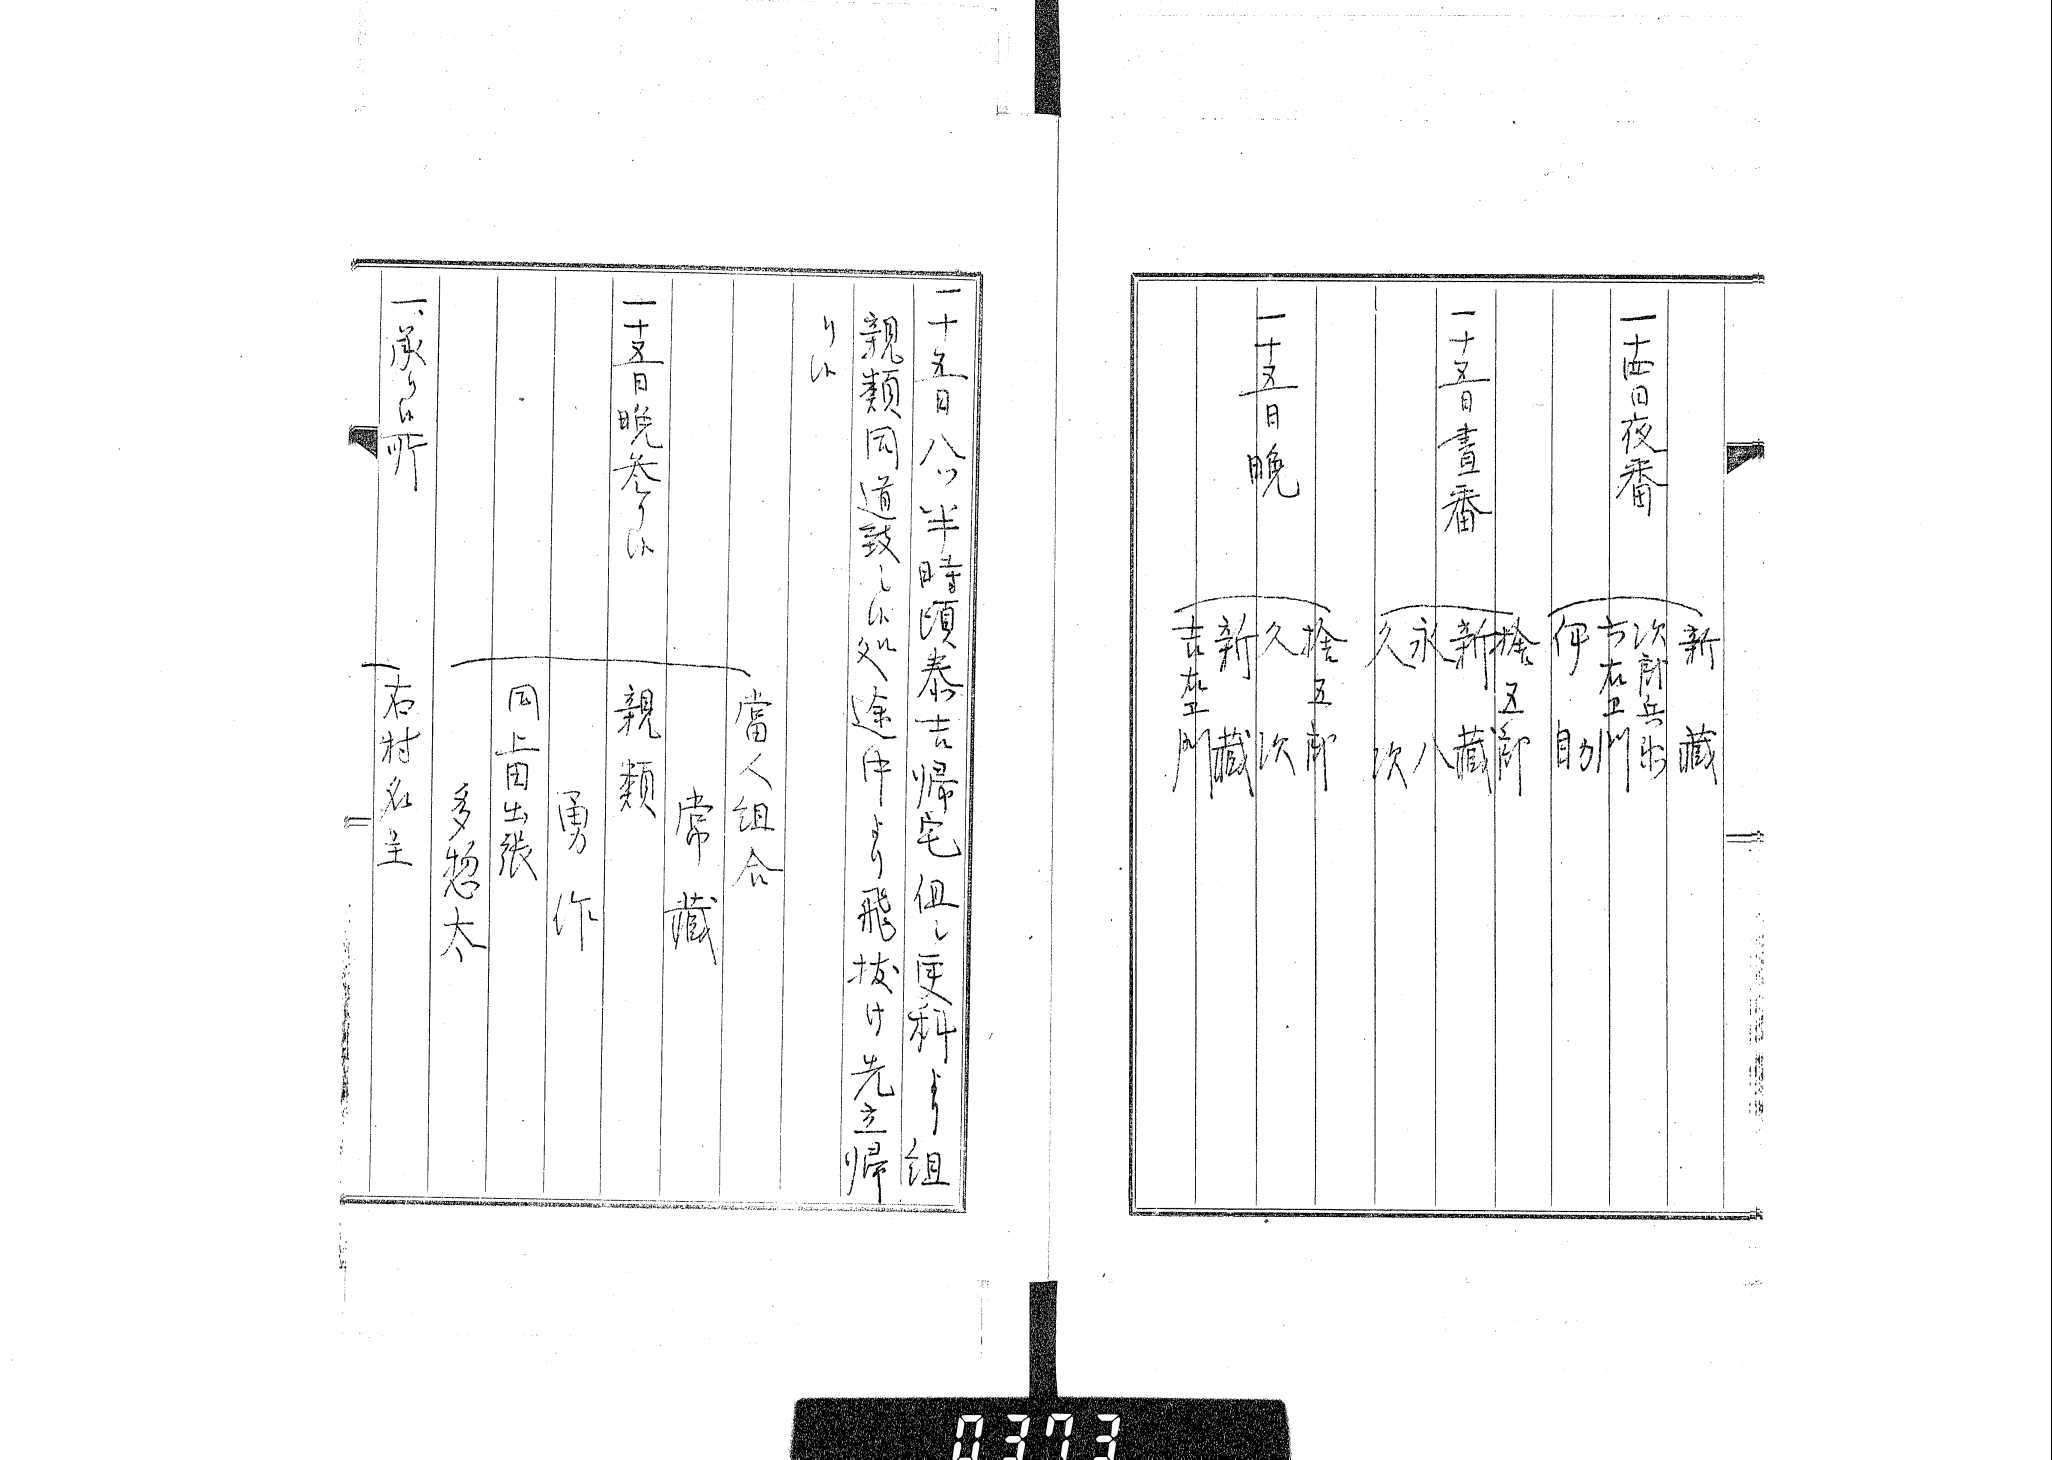 新藏
一十四日夜番
次郎兵衛
市右衛門
伊自助
捨五郎
一十五日晝番
新藏
永八
久次
捨五郎
一十五日晩
久次
新藏
吉左衛門
一十五日八ツ半時頃泰吉帰宅但し更科より組
親類同道致し候処途中より飛抜け先立帰
り候
當人組合
常藏
一十五日晩参り候
親類
勇作
同上田出張
多惣太
一、承り候所
右村名主
0373